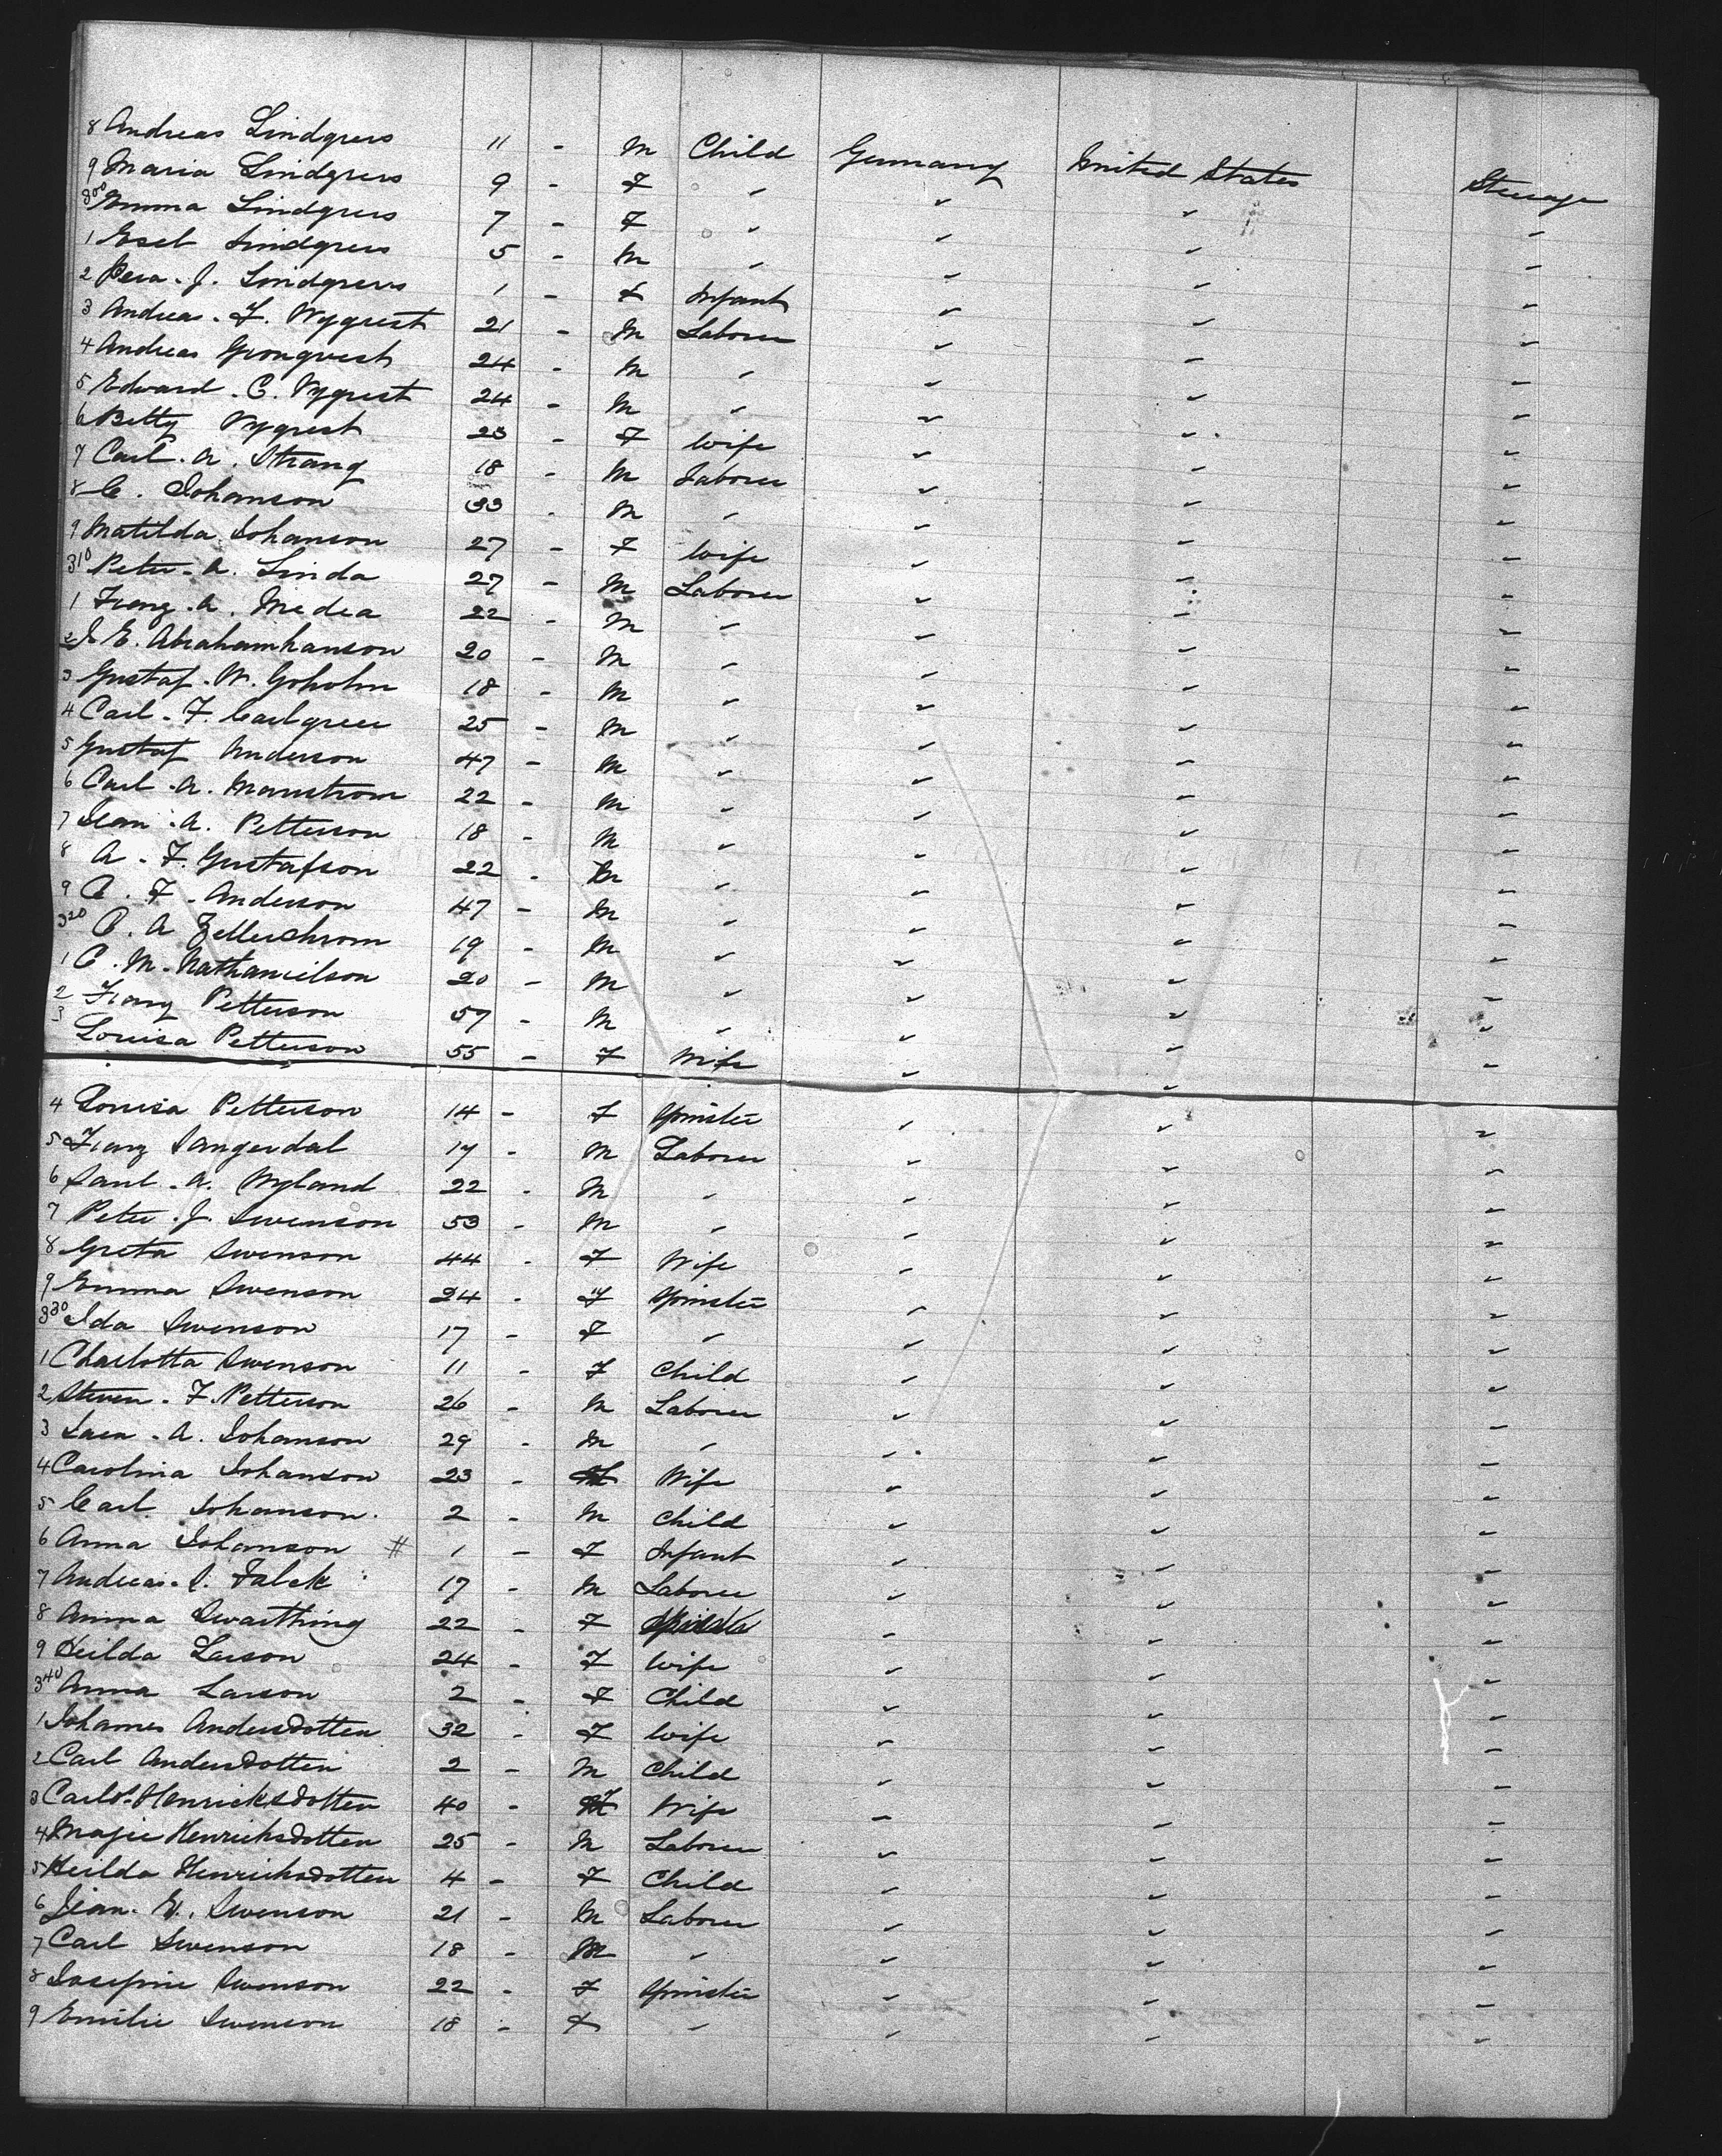 8 Andreas Lindgrens 11 - M Child Germany United States Steerage
9 Maria Lindgrens 9 - F " " " "
300 Emma Lindgrens 7 - F " " " "
1 Lindgrens 5 - M " " " "
2 J. Lindgrens 1 - F Infant " " "
3 Andreas. F. Nyqrist 21 - M Laborer " " "
4 Andreas Gronqvest 24 - M " " " "
5 Edward. C. Nyqrest 24 - M " " " "
6 Betty Nyqrest 23 - F Wife " " "
7 Carl. A. Strang 18 - M Laborer " " "
8 C. Johanson 33 - M " " " "
9 Matilda Johanson 27 - F Wife " " "
310 Peter. A. Linda 27 - M Laborer " " "
1 Franz. A. Medea 22 - M " " " "
2 J E. Abrahamhanson 20 - M " " " "
3 Gustaf. W. Goholm 18 - M " " " "
4 Carl. F. Carlgreen 25 - M " " " "
5 Gustaf Anderson 47 - M " " " "
6 Carl. A. Manstrom 22 - M " " " "
7 A. Petterson 18 - M " " " "
8 A. F. Gustafson 22 - M " " " "
9 C. F. Anderson 47 - M " " " "
320 C. A Zellerstrom 19 - M " " " "
1 C. M. Nathanielson 20 - M " " " "
2 Franz Petterson 57 - M " " " "
3 Louisa Petterson 55 - F Wife " " "
4 Louisa Petterson 14 - F Spinster " " "
5 Franz Sangerdal 17 - M Laborer " " "
6 A. Nyland 22 - M " " " "
7 Peter. J. Swenson 53 - M " " " "
8 Greta Swenson 44 - F Wife " " "
9 Emma Swenson 24 - F Spinster " " "
330 Ida Swenson 17 - F " " " "
1 Charlotta Swenson 11 - F Child " " "
2 Steven. F. Petterson 26 - M Laborer " " "
3 A. Johanson 29 - M " " " "
4 Carolina Johanson 23 - F Wife " " "
5 Carl Johanson 2 - M Child " " "
6 Anna Johanson # 1 - F Infant " " "
7 Andreas. S. Falck 17 - M Laborer " " "
8 Anna Swarthing 22 - F " " "
9 Heilda Larson 24 - F Wife " " "
340 Anna Larson 2 - F Child " " "
1 Johames Andersdotten 32 - F Wife " " "
2 Carl Andersdotten 2 - M Child " " "
3 Henricksdotten 40 - F Wife " " "
4 Majie Henricksdotten 25 - M Laborer " " "
5 Heilda Henricksdotten 4 - F Child " " "
6 Jean. E. Swenson 21 - M Laborer " " "
7 Carl Swenson 18 - M " " " "
8 Josefine Swenson 22 - F Spinster " " "
9 Emilie Swenson 18 - F " " " "